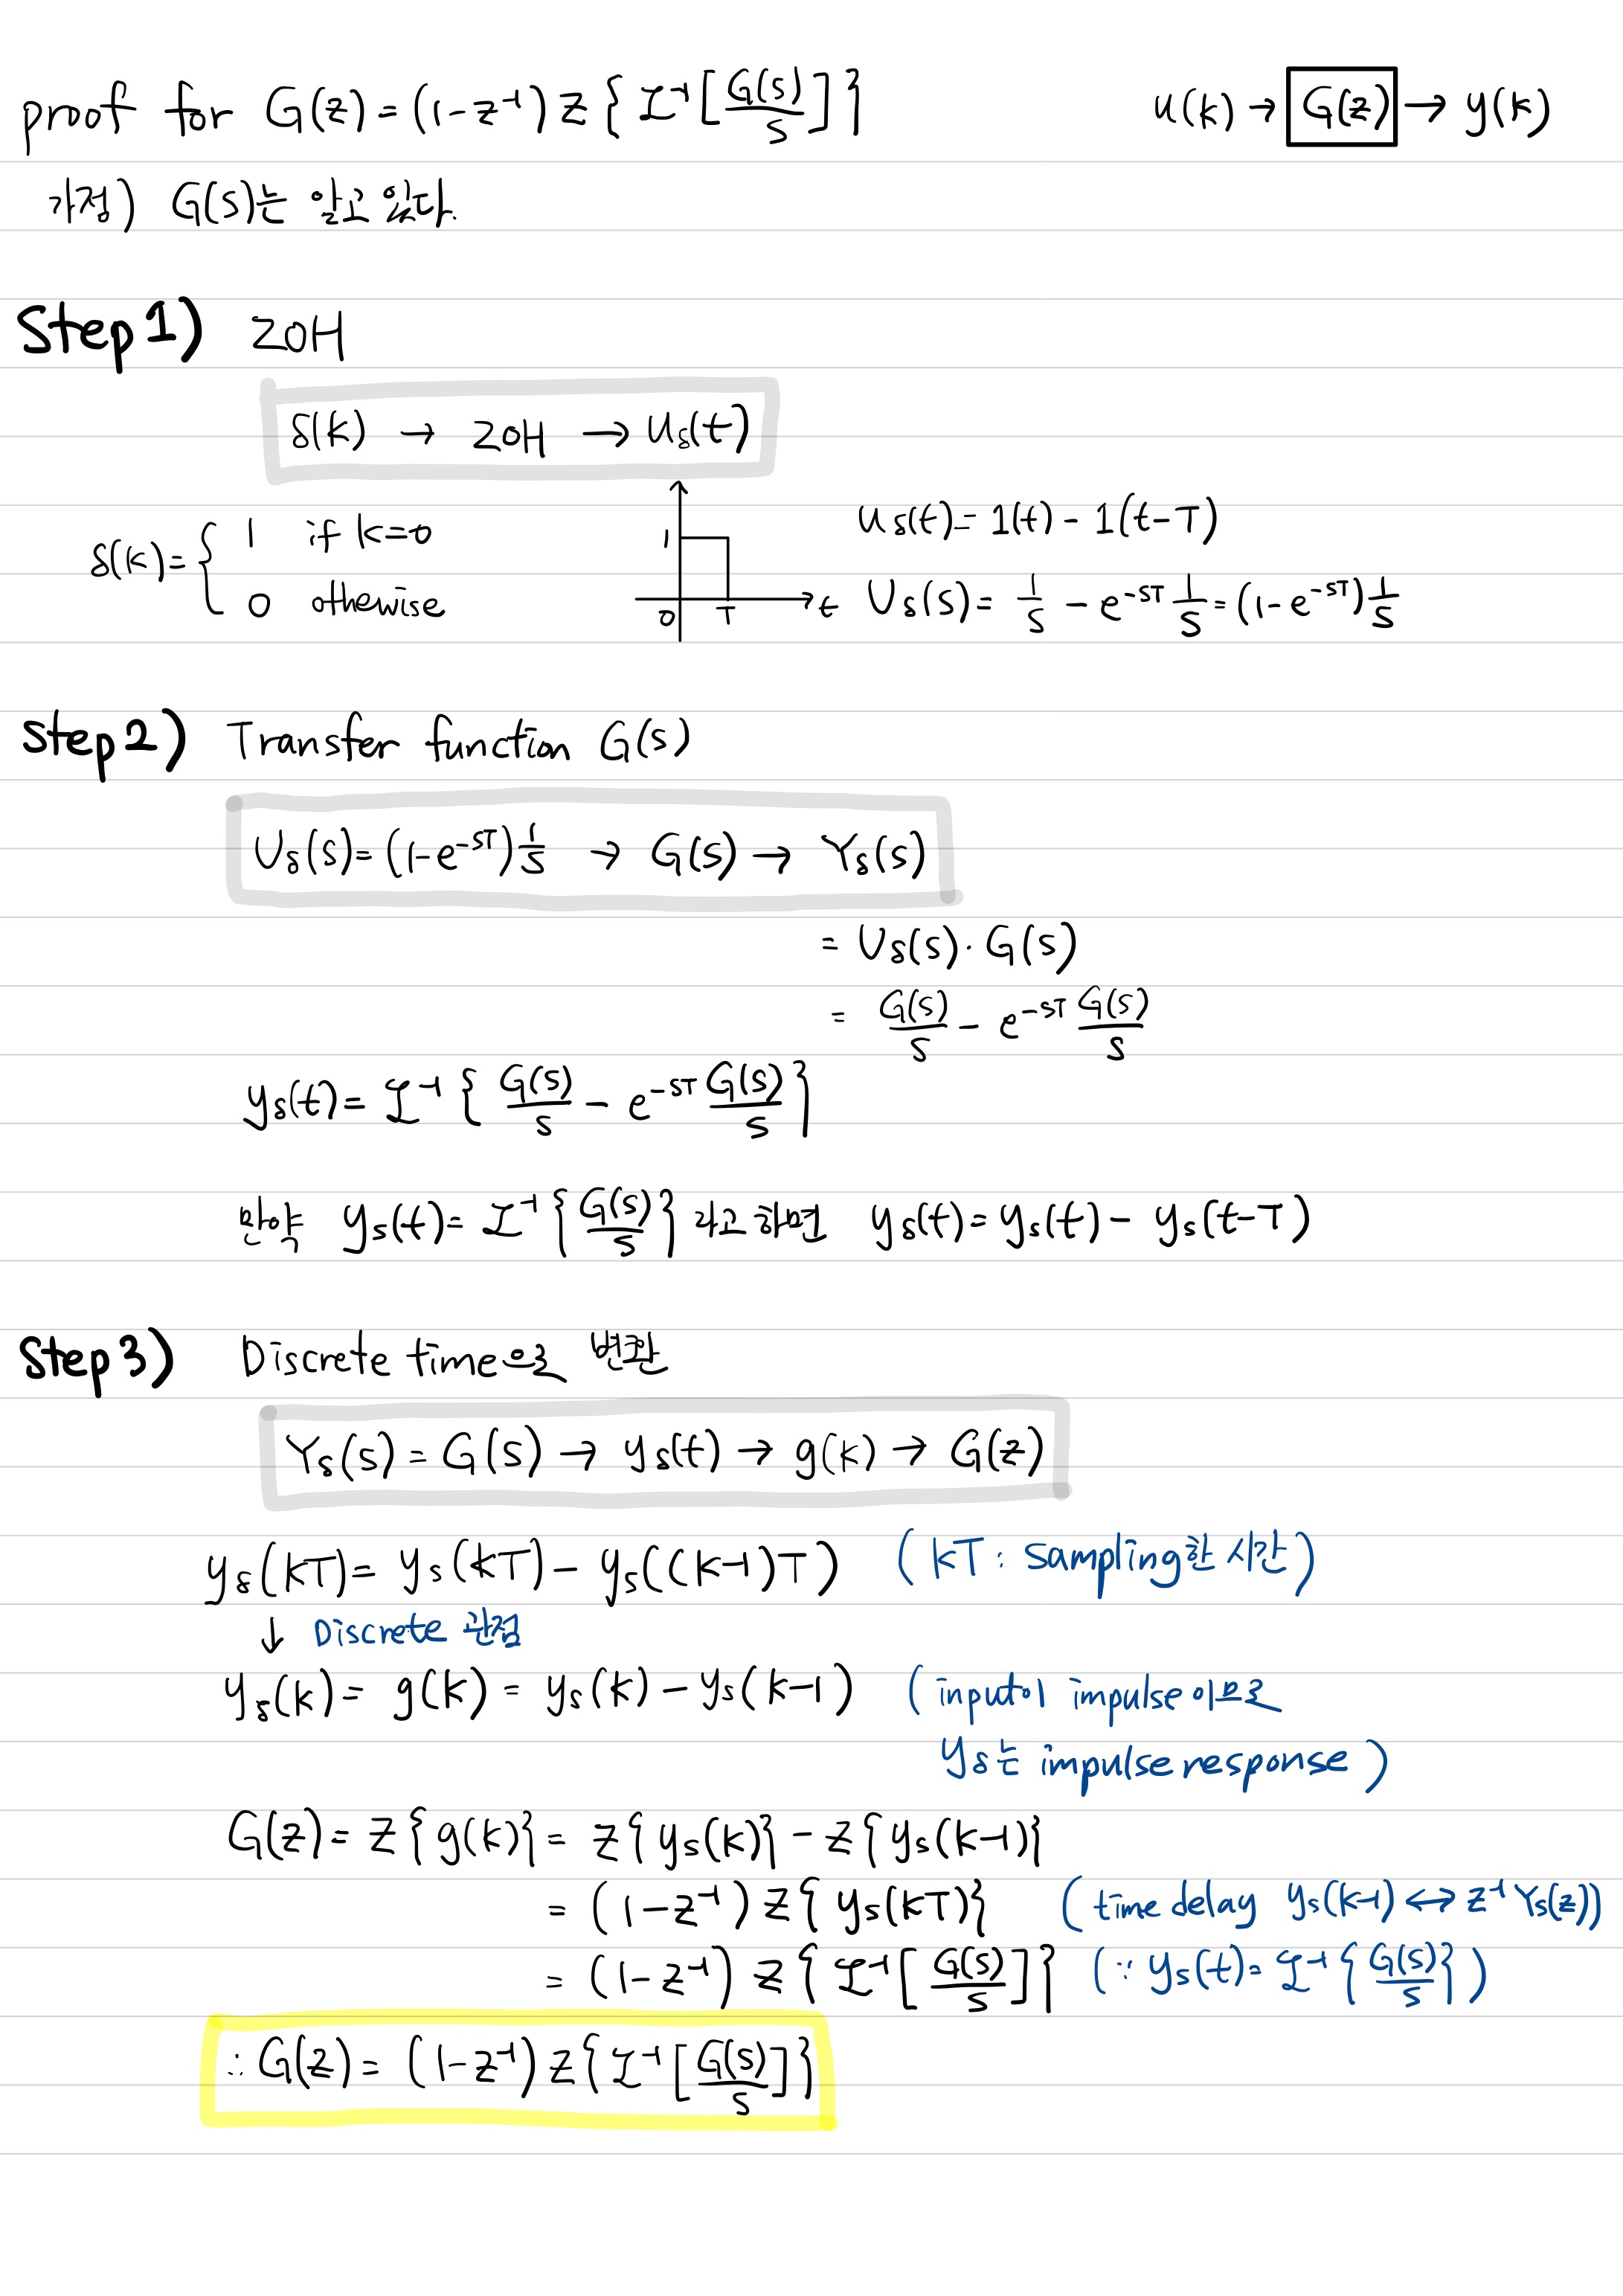 proof for G(z) = (1-z⁻¹) Z { ℒ⁻¹ [ G(s)/s ] }
u(k) → G(z) → y(k)
가정) G(s)는 알고 있다.
Step 1) ZOH
δ(k) → ZOH → u_δ(t)
δ(k) = { 1 if k=0
0 othewise
1
0 T t
u_δ(t) = 1(t) - 1(t-T)
U_δ(s) = 1/s - e^{-sT} 1/s = (1-e^{-sT}) 1/s
Step 2) Transfer function G(s)
U_δ(s) = (1-e^{-sT}) 1/s → G(s) → Y_δ(s)
= U_δ(s) · G(s)
= G(s)/s - e^{-sT} G(s)/s
y_δ(t) = ℒ⁻¹ { G(s)/s - e^{-sT} G(s)/s }
만약 y_s(t) = ℒ⁻¹ { G(s)/s } 라고 하면 y_δ(t) = y_s(t) - y_s(t-T)
Step 3) Discrete time으로 변환
Y_δ(s) = G(s) → y_δ(t) → g(k) → G(z)
y_δ(kT) = y_s(kT) - y_s((k-1)T) (kT : sampling한 시간)
↓ Discrete 관점
y_δ(k) = g(k) = y_s(k) - y_s(k-1) (input이 impulse 이므로
y_δ는 impulse response)
G(z) = Z{g(k)} = Z{y_s(k)} - Z{y_s(k-1)}
= (1-z⁻¹) Z{y_s(kT)} (time delay y_s(k-1) ↔ z⁻¹ Y_s(z))
= (1-z⁻¹) Z { ℒ⁻¹ [ G(s)/s ] } (∵ y_s(t) = ℒ⁻¹ { G(s)/s })
∴ G(z) = (1-z⁻¹) Z { ℒ⁻¹ [ G(s)/s ] }